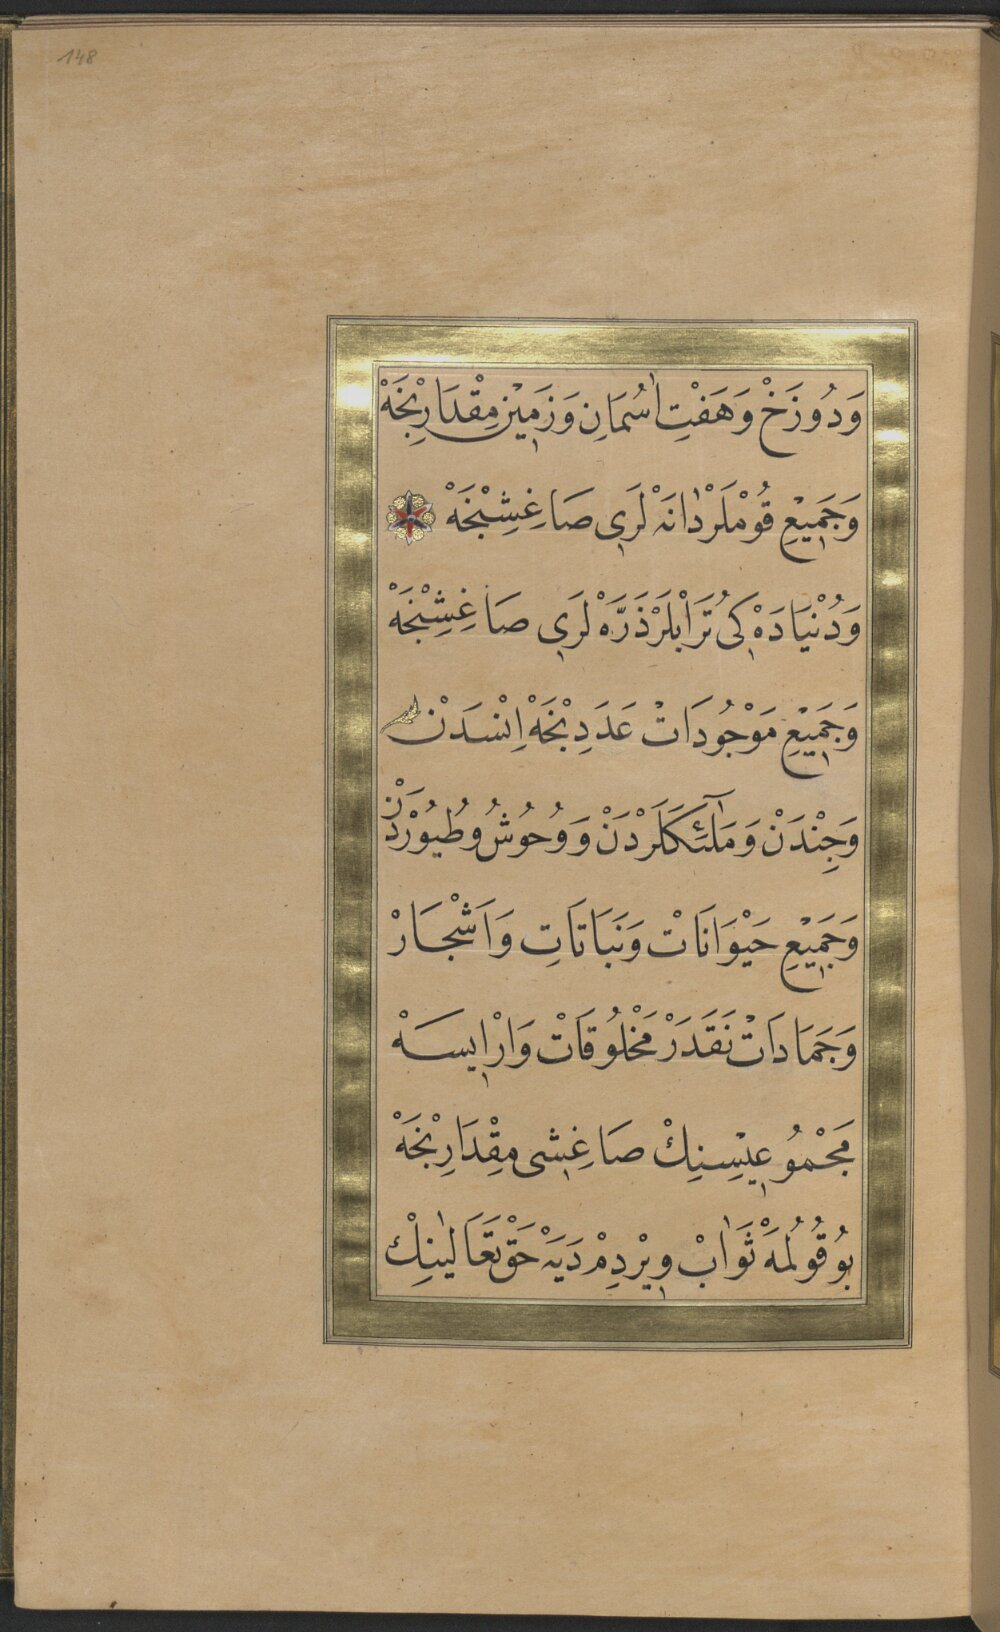 148
وَدُوزَخْ وَهَفْتِ اٰسُمَانِ وَزَمِيْنِ مِقْدَارِنْجَهْ
وَجَمِيْعِ قُوْمْلَرْدَانَهْ لَرِي صَاغِشِنْجَهْ
وَدُنْيَادَهْ كِى تُرَابْلَرْ ذَرَّهْ لَرِي صَاغِشِنْجَهْ
وَجَمِيْعِ مَوْجُودَاتْ عَدَدِنْجَهْ اِنْسَدَنْ
وَجِنْدَنْ وَمَلٰٓئِكَلَرْدَنْ وَوُحُوشُ وُطُيُوْرْدَنْ
وَجَمِيْعِ حَيْوَانَاتْ وَنَبَاتَاتِ وَاَشْجَارْ
وَجَمَادَاتْ نَقَدَرْ مَخْلُوقَاتْ وَارْاِيسَهْ
مَجْمُوعِيْسِنِكْ صَاغِشِى مِقْدَارِنْجَهْ
بُو قُولُمَهْ ثَوَابْ وِيْرْدِمْ دَيَهْ حَقْ تَعَالٰينِكْ